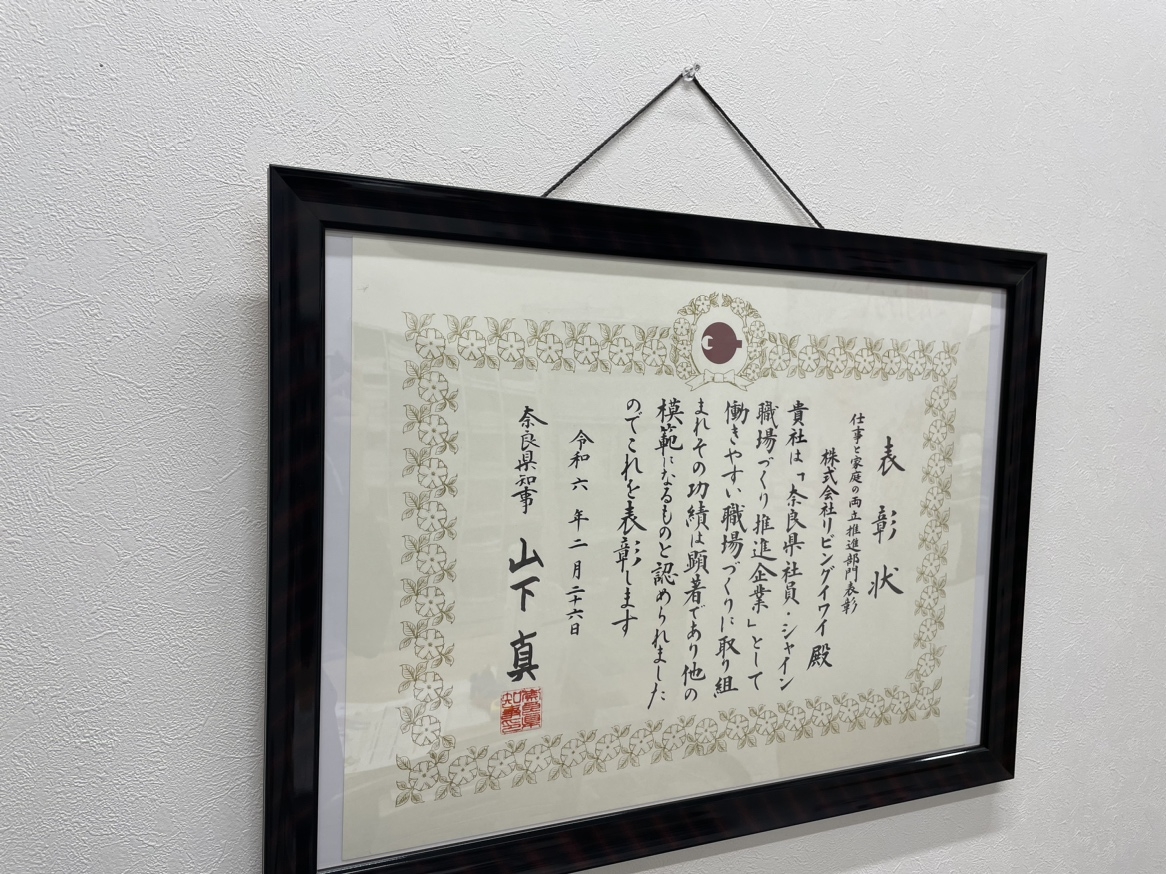 表彰状
仕事と家庭の両立推進部門表彰
株式会社リビングイワイ 殿
貴社は「奈良県社員・シャイン
職場づくり推進企業」として
働きやすい職場づくりに取り組
まれその功績は顕著であり他の
模範になるものと認められました
のでこれを表彰します
令和六年二月二十六日
奈良県知事 山下 真
奈良県
知事之印